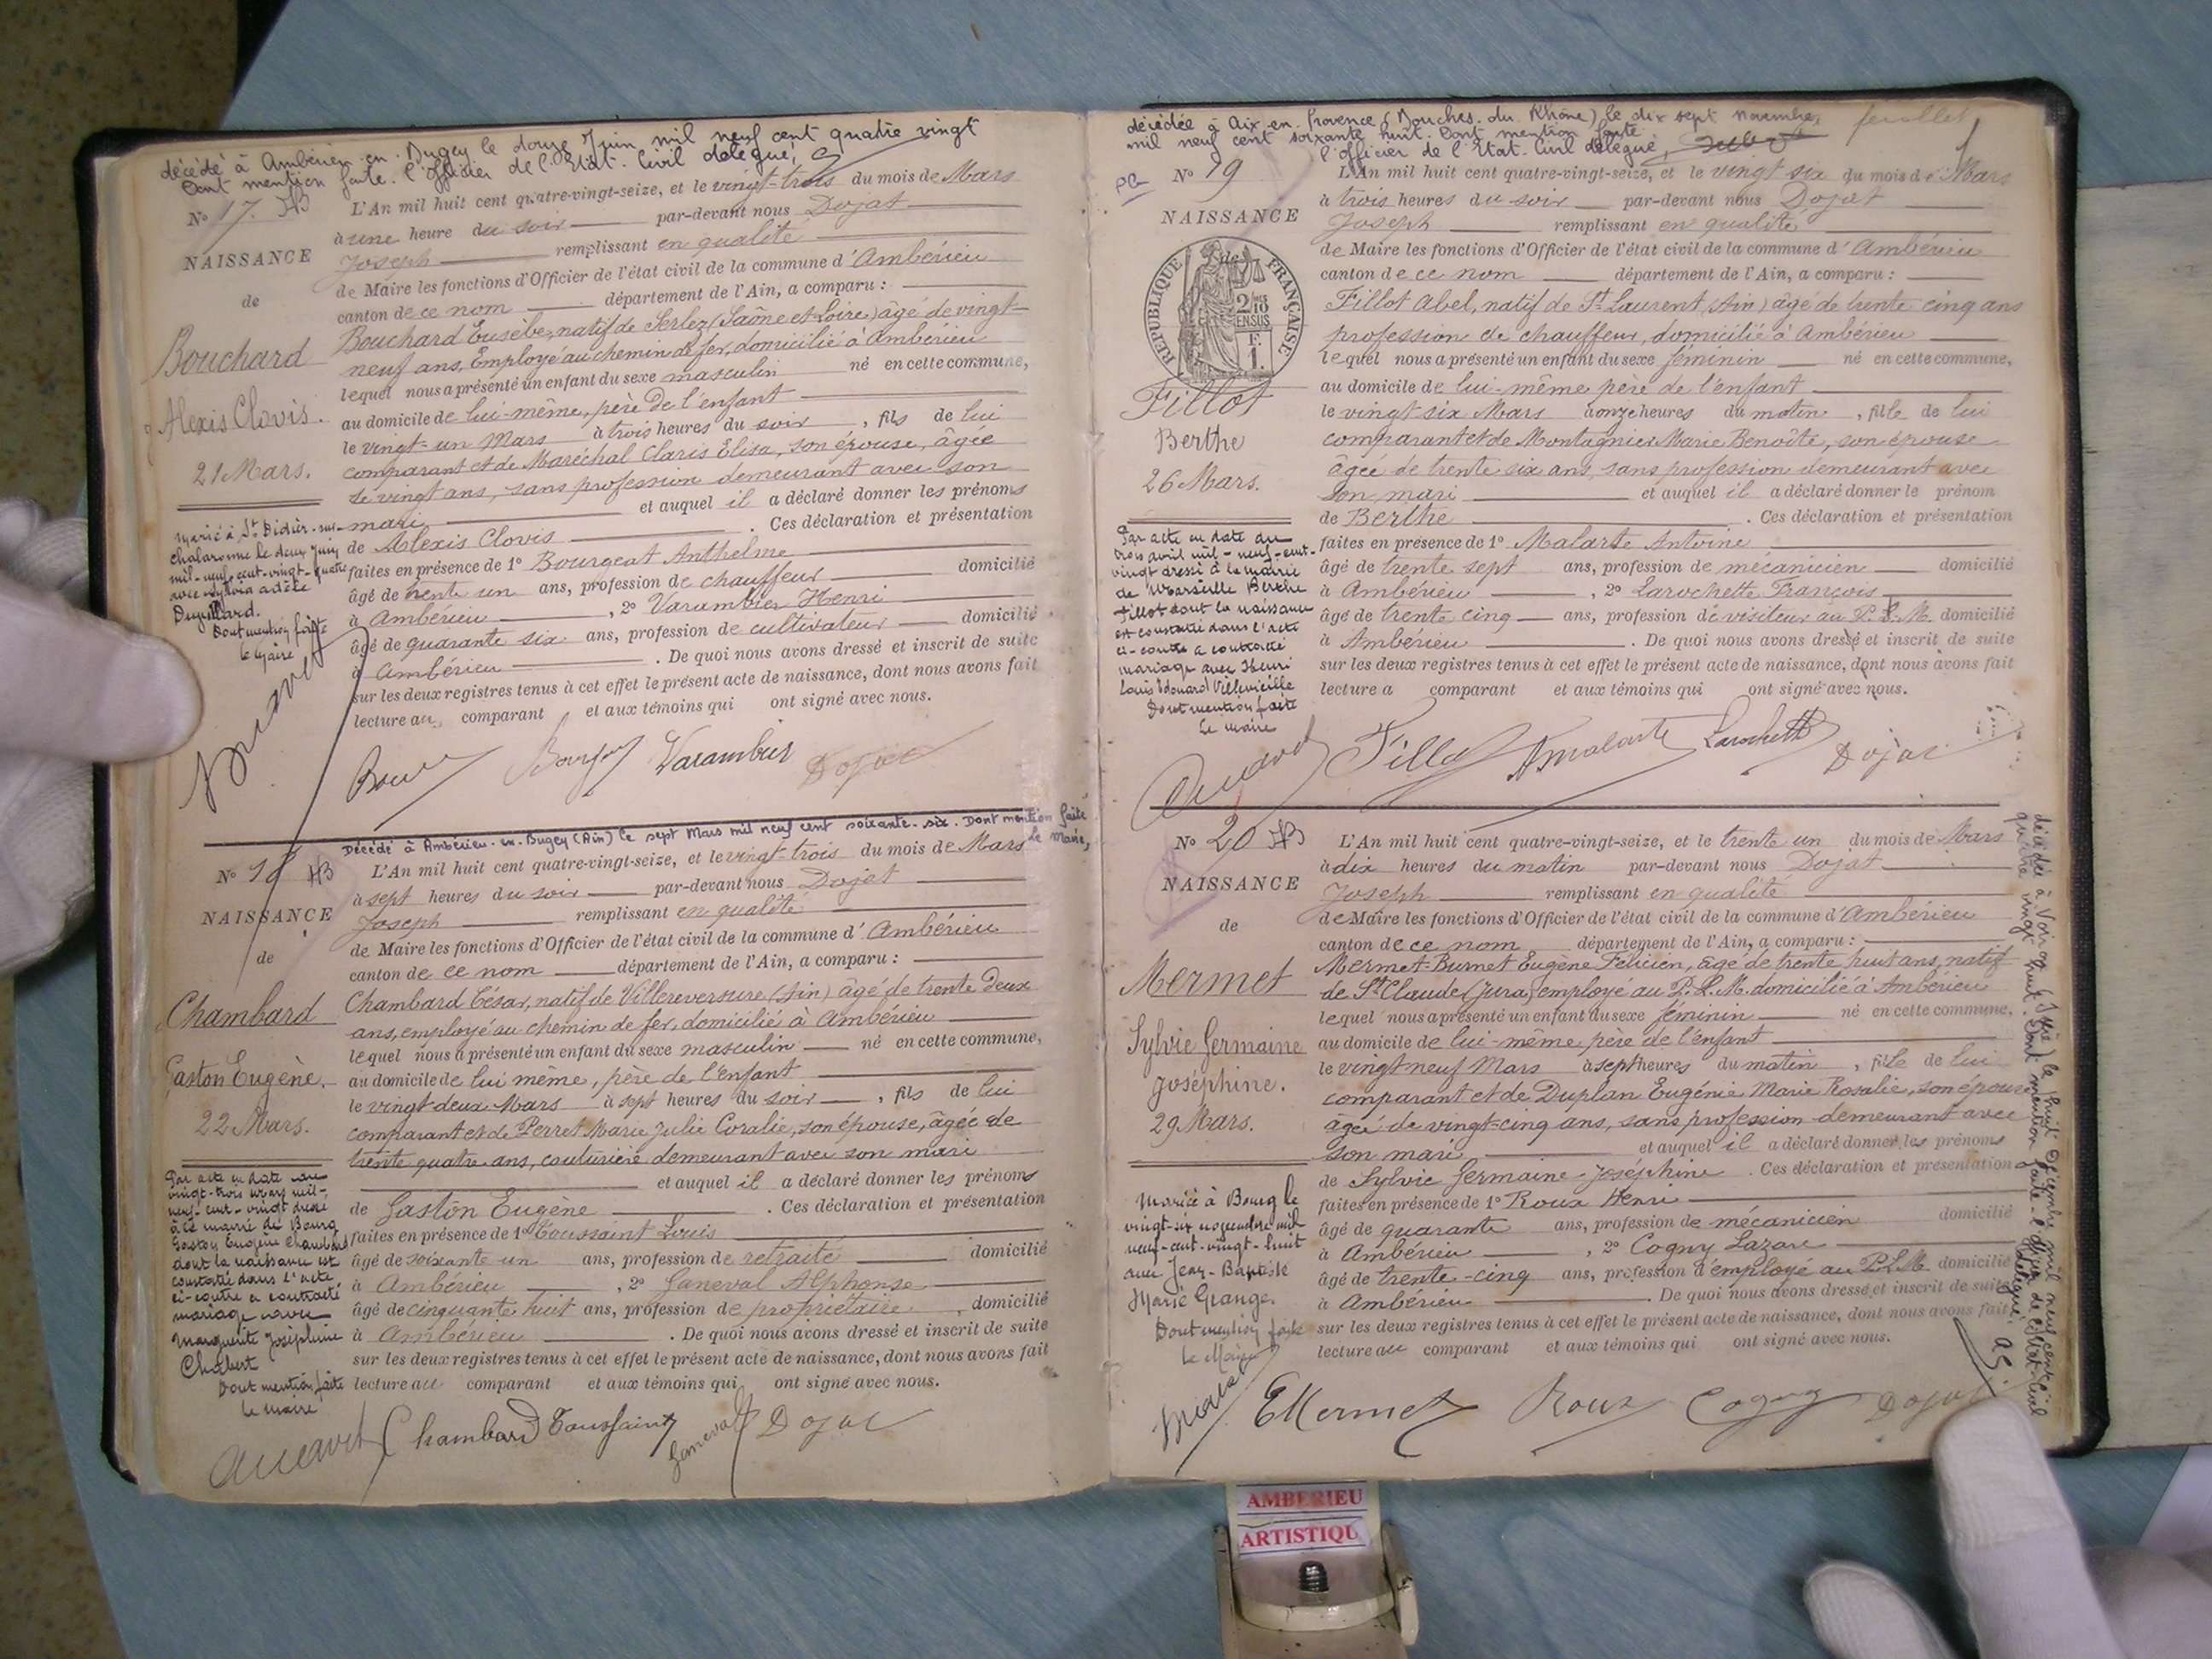 décédé à Ambérieu-en-Bugey le douze Juin mil neuf cent quatre vingt
Dont mention faite. l'Officier de l'Etat-Civil délégué,
No 17.
NAISSANCE
de
Bouchard
Alexis Clovis.
21 Mars.
Marié à St Didier-sur-
Chalaronne le deux Juin
mil-neuf-cent-vingt-quatre
avec Sylvia Adèle
Duguillard.
Dont mention faite
le Maire
L'An mil huit cent quatre-vingt-seize, et le vingt-trois du mois de Mars
à une heure du soir par-devant nous Dojat
Joseph remplissant en qualité
de Maire les fonctions d'Officier de l'état civil de la commune d'Ambérieu
canton de ce nom département de l'Ain, a comparu :
Bouchard Eusèbe, natif de Serley (Saône et Loire) âgé de vingt-
neuf ans, Employé au chemin de fer, domicilié à Ambérieu
lequel nous a présenté un enfant du sexe masculin né en cette commune,
au domicile de lui-même, père de l'enfant
le vingt-un Mars à trois heures du soir, fils de lui
comparant et de Maréchal Claris Elisa, son épouse, âgée
de vingt ans, sans profession demeurant avec son
mari et auquel il a déclaré donner les prénoms
de Alexis Clovis. Ces déclaration et présentation
faites en présence de 1o Bourgeat Anthelme
âgé de trente un ans, profession de chauffeur domicilié
à Ambérieu, 2o Varambier Henri
âgé de quarante six ans, profession de cultivateur domicilié
à Ambérieu. De quoi nous avons dressé et inscrit de suite
sur les deux registres tenus à cet effet le présent acte de naissance, dont nous avons fait
lecture au comparant et aux témoins qui ont signé avec nous.
Varambier Dojat
Décédé à Ambérieu-en-Bugey (Ain) le sept Mars mil neuf cent soixante-six. Dont mention faite
le Maire,
No 18
NAISSANCE
de
Chambard
Gaston Eugène.
22 Mars.
Par acte en date du
vingt-trois mars mil-
neuf-cent-vingt dressé
à la mairie de Bourg
Gaston Eugène Chambard
dont la naissance est
constatée dans l'acte
ci-contre a contracté
mariage avec
Marguerite Joséphine
Chabert
Dont mention faite
le maire
L'An mil huit cent quatre-vingt-seize, et le vingt-trois du mois de Mars
à sept heures du soir par-devant nous Dojat
Joseph remplissant en qualité
de Maire les fonctions d'Officier de l'état civil de la commune d'Ambérieu
canton de ce nom département de l'Ain, a comparu :
Chambard César, natif de Villereversure (Ain) âgé de trente deux
ans, employé au chemin de fer, domicilié à Ambérieu
lequel nous a présenté un enfant du sexe masculin né en cette commune,
au domicile de lui même, père de l'enfant
le vingt-deux Mars à sept heures du soir, fils de lui
comparant et de Perret Marie Julie Coralie, son épouse, âgée de
trente quatre ans, couturière demeurant avec son mari
et auquel il a déclaré donner les prénoms
de Gaston Eugène. Ces déclaration et présentation
faites en présence de 1o Toussaint Louis
âgé de soixante un ans, profession de retraité domicilié
à Ambérieu, 2o Janeval Alphonse
âgé de cinquante huit ans, profession de propriétaire, domicilié
à Ambérieu. De quoi nous avons dressé et inscrit de suite
sur les deux registres tenus à cet effet le présent acte de naissance, dont nous avons fait
lecture au comparant et aux témoins qui ont signé avec nous.
Chambard Toussaint Janeval Dojat
décédée à Aix-en-Provence (Bouches-du-Rhône) le dix sept novembre
mil neuf cent soixante huit. Dont mention faite
l'officier de l'Etat-Civil délégué,
feuillet
No 19
NAISSANCE
de
REPUBLIQUE FRANÇAISE
2/10 EN SUS
F. 1.
Fillot
Berthe
26 Mars.
Par acte en date du
trois avril mil-neuf-cent-
vingt dressé à la mairie
de Marseille Berthe
Fillot dont la naissance
est constatée dans l'acte
ci-contre a contracté
mariage avec Henri
Louis Edouard Villevieille
Dont mention faite
Le maire
L'An mil huit cent quatre-vingt-seize, et le vingt six du mois de Mars
à trois heures du soir par-devant nous Dojat
Joseph remplissant en qualité
de Maire les fonctions d'Officier de l'état civil de la commune d'Ambérieu
canton de ce nom département de l'Ain, a comparu :
Fillot Abel, natif de St Laurent (Ain) âgé de trente cinq ans
profession de chauffeur, domicilié à Ambérieu
lequel nous a présenté un enfant du sexe féminin né en cette commune,
au domicile de lui-même père de l'enfant
le vingt-six Mars à onze heures du matin, fille de lui
comparant et de Montagnier Marie Benoîte, son épouse
âgée de trente six ans, sans profession demeurant avec
son mari et auquel il a déclaré donner le prénom
de Berthe. Ces déclaration et présentation
faites en présence de 1o Malarte Antoine
âgé de trente sept ans, profession de mécanicien domicilié
à Ambérieu, 2o Larochette François
âgé de trente cinq ans, profession de visiteur au P.L.M. domicilié
à Ambérieu. De quoi nous avons dressé et inscrit de suite
sur les deux registres tenus à cet effet le présent acte de naissance, dont nous avons fait
lecture a comparant et aux témoins qui ont signé avec nous.
Fillot Malarte Larochette Dojat
No 20
NAISSANCE
de
Mermet
Sylvie Germaine
Joséphine.
29 Mars.
Mariée à Bourg le
vingt-six novembre mil
neuf-cent-vingt-huit
avec Jean-Baptiste
Marie Grange.
Dont mention faite
Le Maire
L'An mil huit cent quatre-vingt-seize, et le trente un du mois de Mars
à dix heures du matin par-devant nous Dojat
Joseph remplissant en qualité
de Maire les fonctions d'Officier de l'état civil de la commune d'Ambérieu
canton de ce nom département de l'Ain, a comparu :
Mermet-Burnet Eugène Félicien, âgé de trente huit ans, natif
de St Claude (Jura) employé au P.L.M. domicilié à Ambérieu
lequel nous a présenté un enfant du sexe féminin né en cette commune,
au domicile de lui-même père de l'enfant
le vingt neuf Mars à sept heures du matin, fille de lui
comparant et de Duplan Eugénie Marie Rosalie, son épouse
âgée de vingt-cinq ans, sans profession demeurant avec
son mari et auquel il a déclaré donner les prénoms
de Sylvie Germaine Joséphine. Ces déclaration et présentation
faites en présence de 1o Roux Henri
âgé de quarante ans, profession de mécanicien domicilié
à Ambérieu, 2o Cogny Lazare
âgé de trente-cinq ans, profession d'employé au P.L.M. domicilié
à Ambérieu. De quoi nous avons dressé et inscrit de suite
sur les deux registres tenus à cet effet le présent acte de naissance, dont nous avons fait
lecture au comparant et aux témoins qui ont signé avec nous.
EMermet Roux Cogny Dojat
décédée à Voiron (Isère) le huit Décembre mil neuf cent
quatre vingt huit. Dont mention faite - l'Officier de l'Etat-Civil
délégué,
AMBERIEU
ARTISTIQU